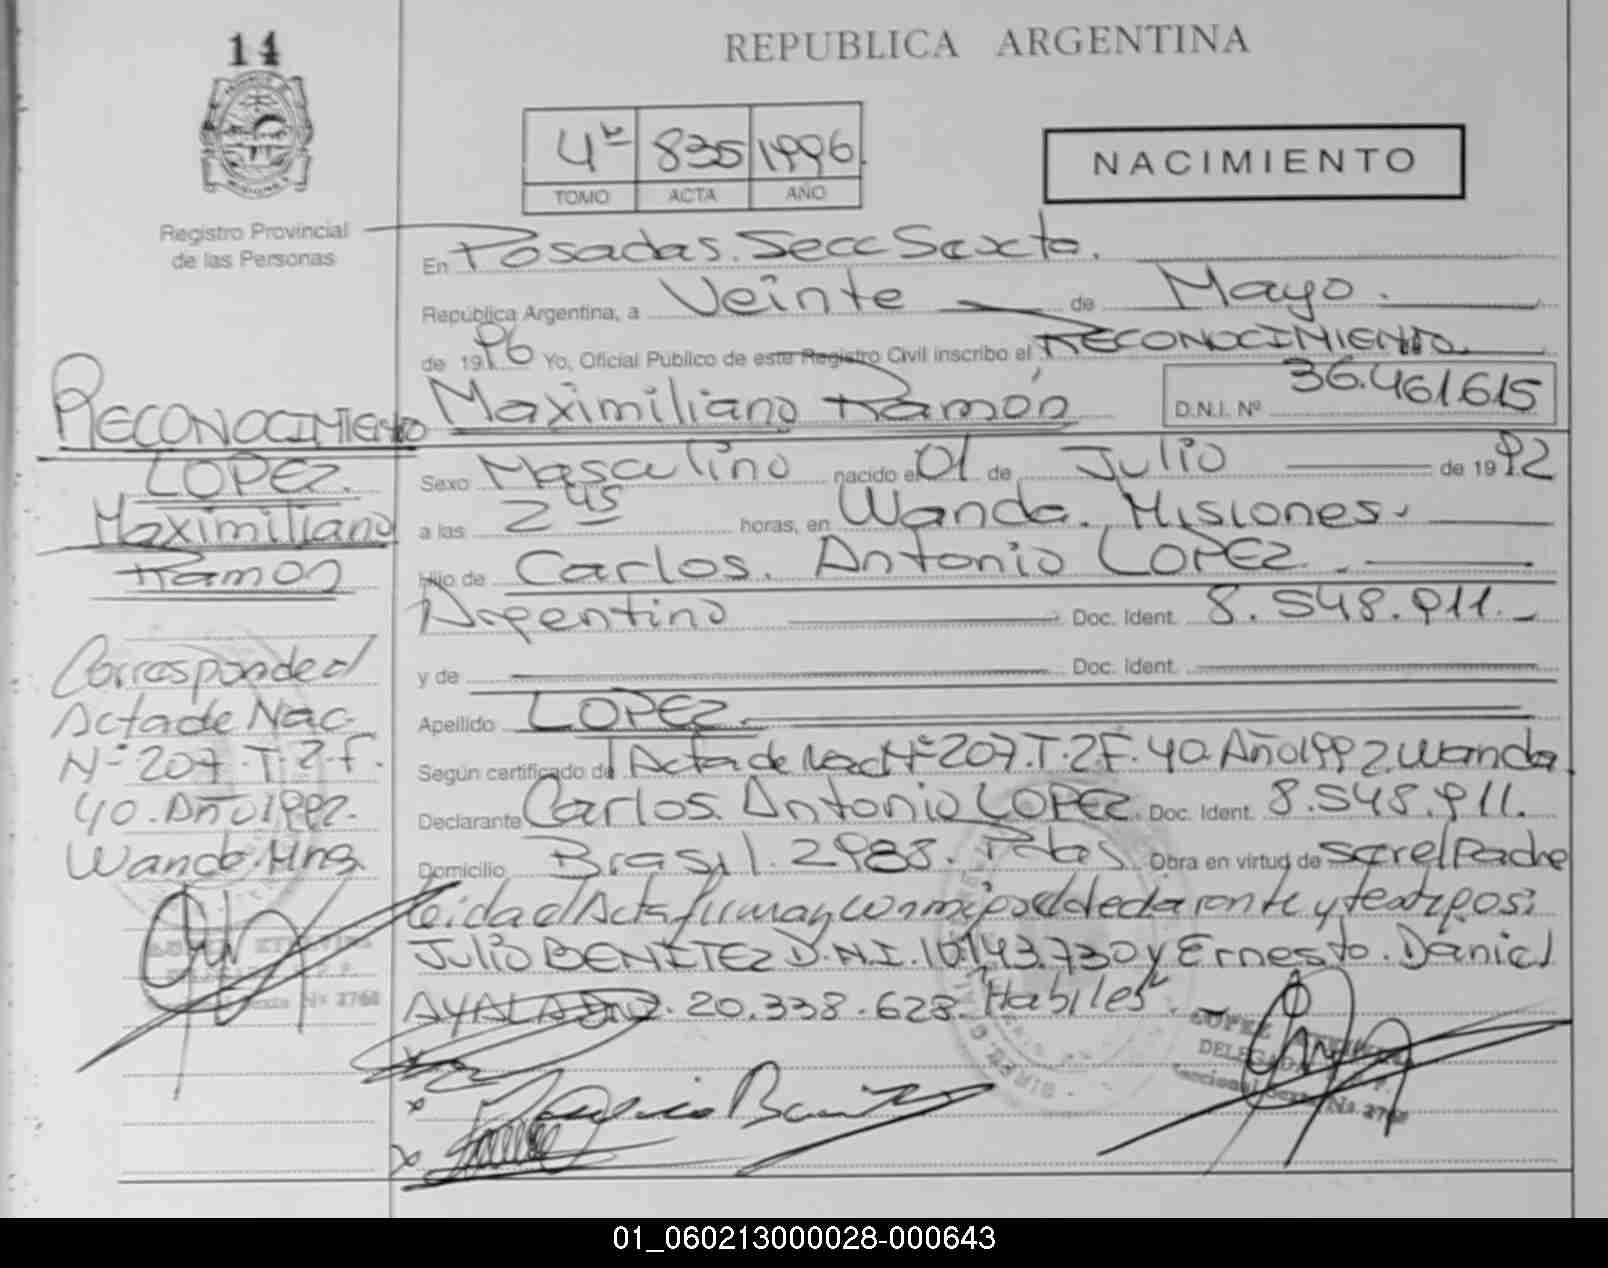 14
REPUBLICA ARGENTINA
4º 835 1996
TOMO ACTA AÑO
NACIMIENTO
Registro Provincial
de las Personas
En Posadas. Secc Sexta.
República Argentina, a Veinte de Mayo.
de 1996 Yo, Oficial Público de este Registro Civil inscribo el RECONOCIMIENTO
Maximiliano Ramón D.N.I. Nº 36.461.615
Sexo Masculino nacido el 01 de Julio de 1992
a las 2 45 horas, en Wanda. Misiones.
Hijo de Carlos. Antonio LOPEZ.
Argentino Doc. Ident. 8.548.911.
y de Doc. Ident.
Apellido LOPEZ.
Según certificado de Acta de Nac Nº 207. T. 2. F. 40. Año 1992. Wanda
Declarante Carlos. Antonio LOPEZ. Doc. Ident. 8.548.911.
Domicilio Brasil. 2988. Pdas Obra en virtud de ser el Padre
Leida el Acta firman conmigo el declarante y testigos:
Julio BENITEZ D.N.I. 10.143.730 y Ernesto. Daniel
AYALA DNI. 20.338.628. Habiles
RECONOCIMIENTO
LOPEZ.
Maximiliano
Ramon
Corresponde al
Acta de Nac.
Nº 207. T. 2. F.
40. Año 1992.
Wanda. Mnes.
LOPEZ
DELEGADA
Seccional Sexta Nº 2768
01_060213000028-000643